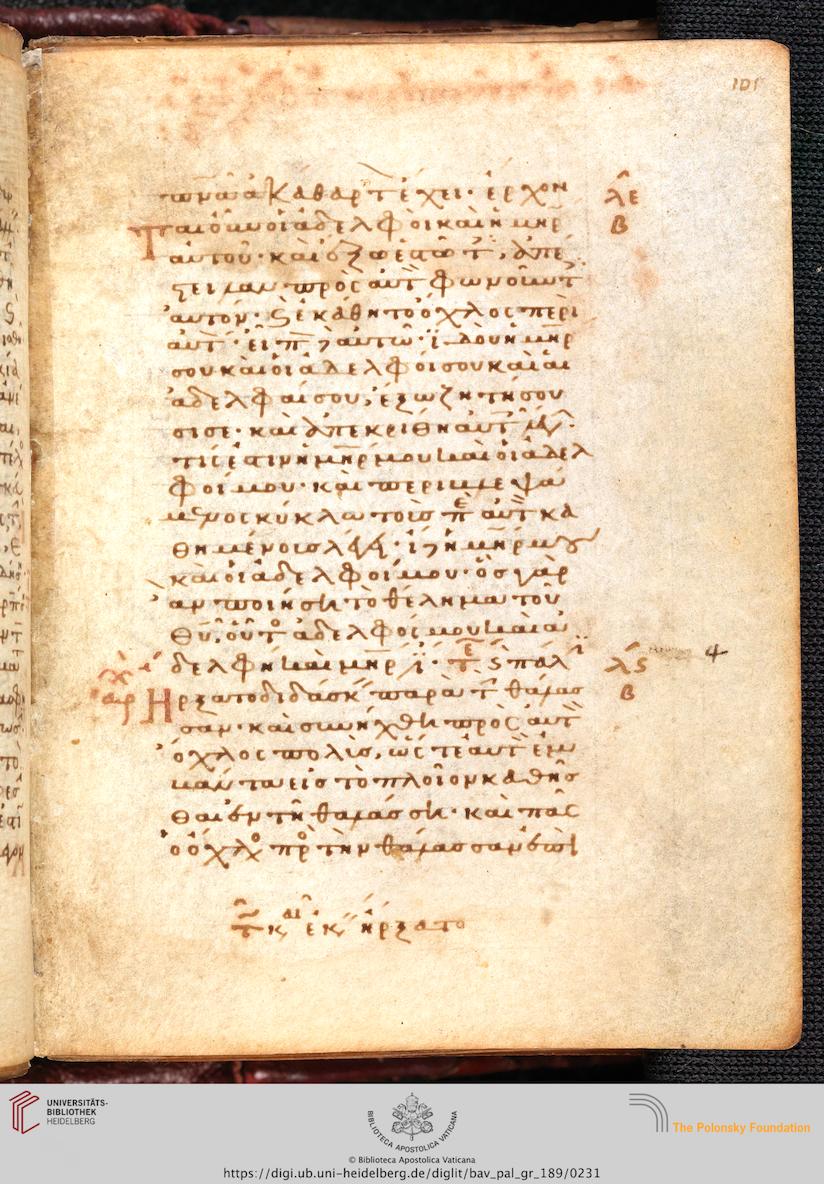 101
πνᾶ ἀκάθαρτ ἔχει· ἔρχον
ται οὖν οἱ ἀδελφοὶ καὶ ἡ μηρ
αὐτοῦ· καὶ ἔξω ἑστῶτ, ἀπέ
στειλαν πρὸς αὐτ φωνοῦντ
αὐτόν· ἐκάθητο ὄχλος περὶ
αὐτ· αὐτῶ· ἰδοὺ ἡ μηρ
σου καὶ οἱ ἀδελφοί σου καὶ αἱ
ἀδελφαί σου, ἔξω ζητοῦσί
σε· καὶ ἀπεκρίθη αὐτ
τίς ἐστιν ἡ μηρ μου καὶ οἱ ἀδελ
φοί μου· καὶ περιβλεψά
μενος κύκλω τοὺς π αὐτ κα
θημένους λέγει· ἡ μηρ μου
καὶ οἱ ἀδελφοί μου· ὃς γὰρ
ἂν ποιήση τὸ θέλημα τοῦ
θυ, οὗτο ἀδελφός μου καὶ ἀ
δελφὴ καὶ μηρ
ἤρξατο διδάσκ παρὰ τ θάλασ
σαν· καὶ συνήχθη πρὸς αὐτ
ὄχλος πολύς, ὥστε αὐτ ἐμ
βάντα εἰς τὸ πλοῖον καθῆσ
θαι ἐν τῆ θαλάσση· καὶ πᾶς
ὁ ὄχλο πρ τὴν θάλασσαν ἐπὶ
λε
β
λς
β
4
ἤρξατο
UNIVERSITÄTS-
BIBLIOTHEK
HEIDELBERG
BIBLIOTECA APOSTOLICA VATICANA
© Biblioteca Apostolica Vaticana
The Polonsky Foundation
https://digi.ub.uni-heidelberg.de/diglit/bav_pal_gr_189/0231